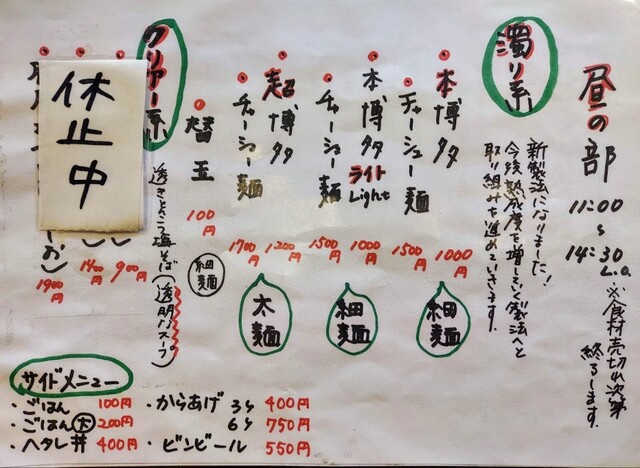 昼の部
11:00
〜
14:30
L.o.
※食材売切れ次第
終了します.
濁り系
新製法になりました!
今後熟成度を増していく製法へと
取り組みを進めていきます.
本博多
1000円
チャーシュー麺
1500円
細麺
本博多
ライト
Light
1000円
チャーシュー麺
1500円
細麺
超博多
1200円
チャーシュー麺
1700円
太麺
替玉
100円
細麺
クリアー系
透きとおる海そば(透明なスープ)
900円
1400円
お)
1900円
休止中
サイドメニュー
・ごはん 100円
・ごはん大 200円
・ヘタレ丼 400円
・からあげ 3ケ 400円
6ケ 750円
・ビンビール 550円